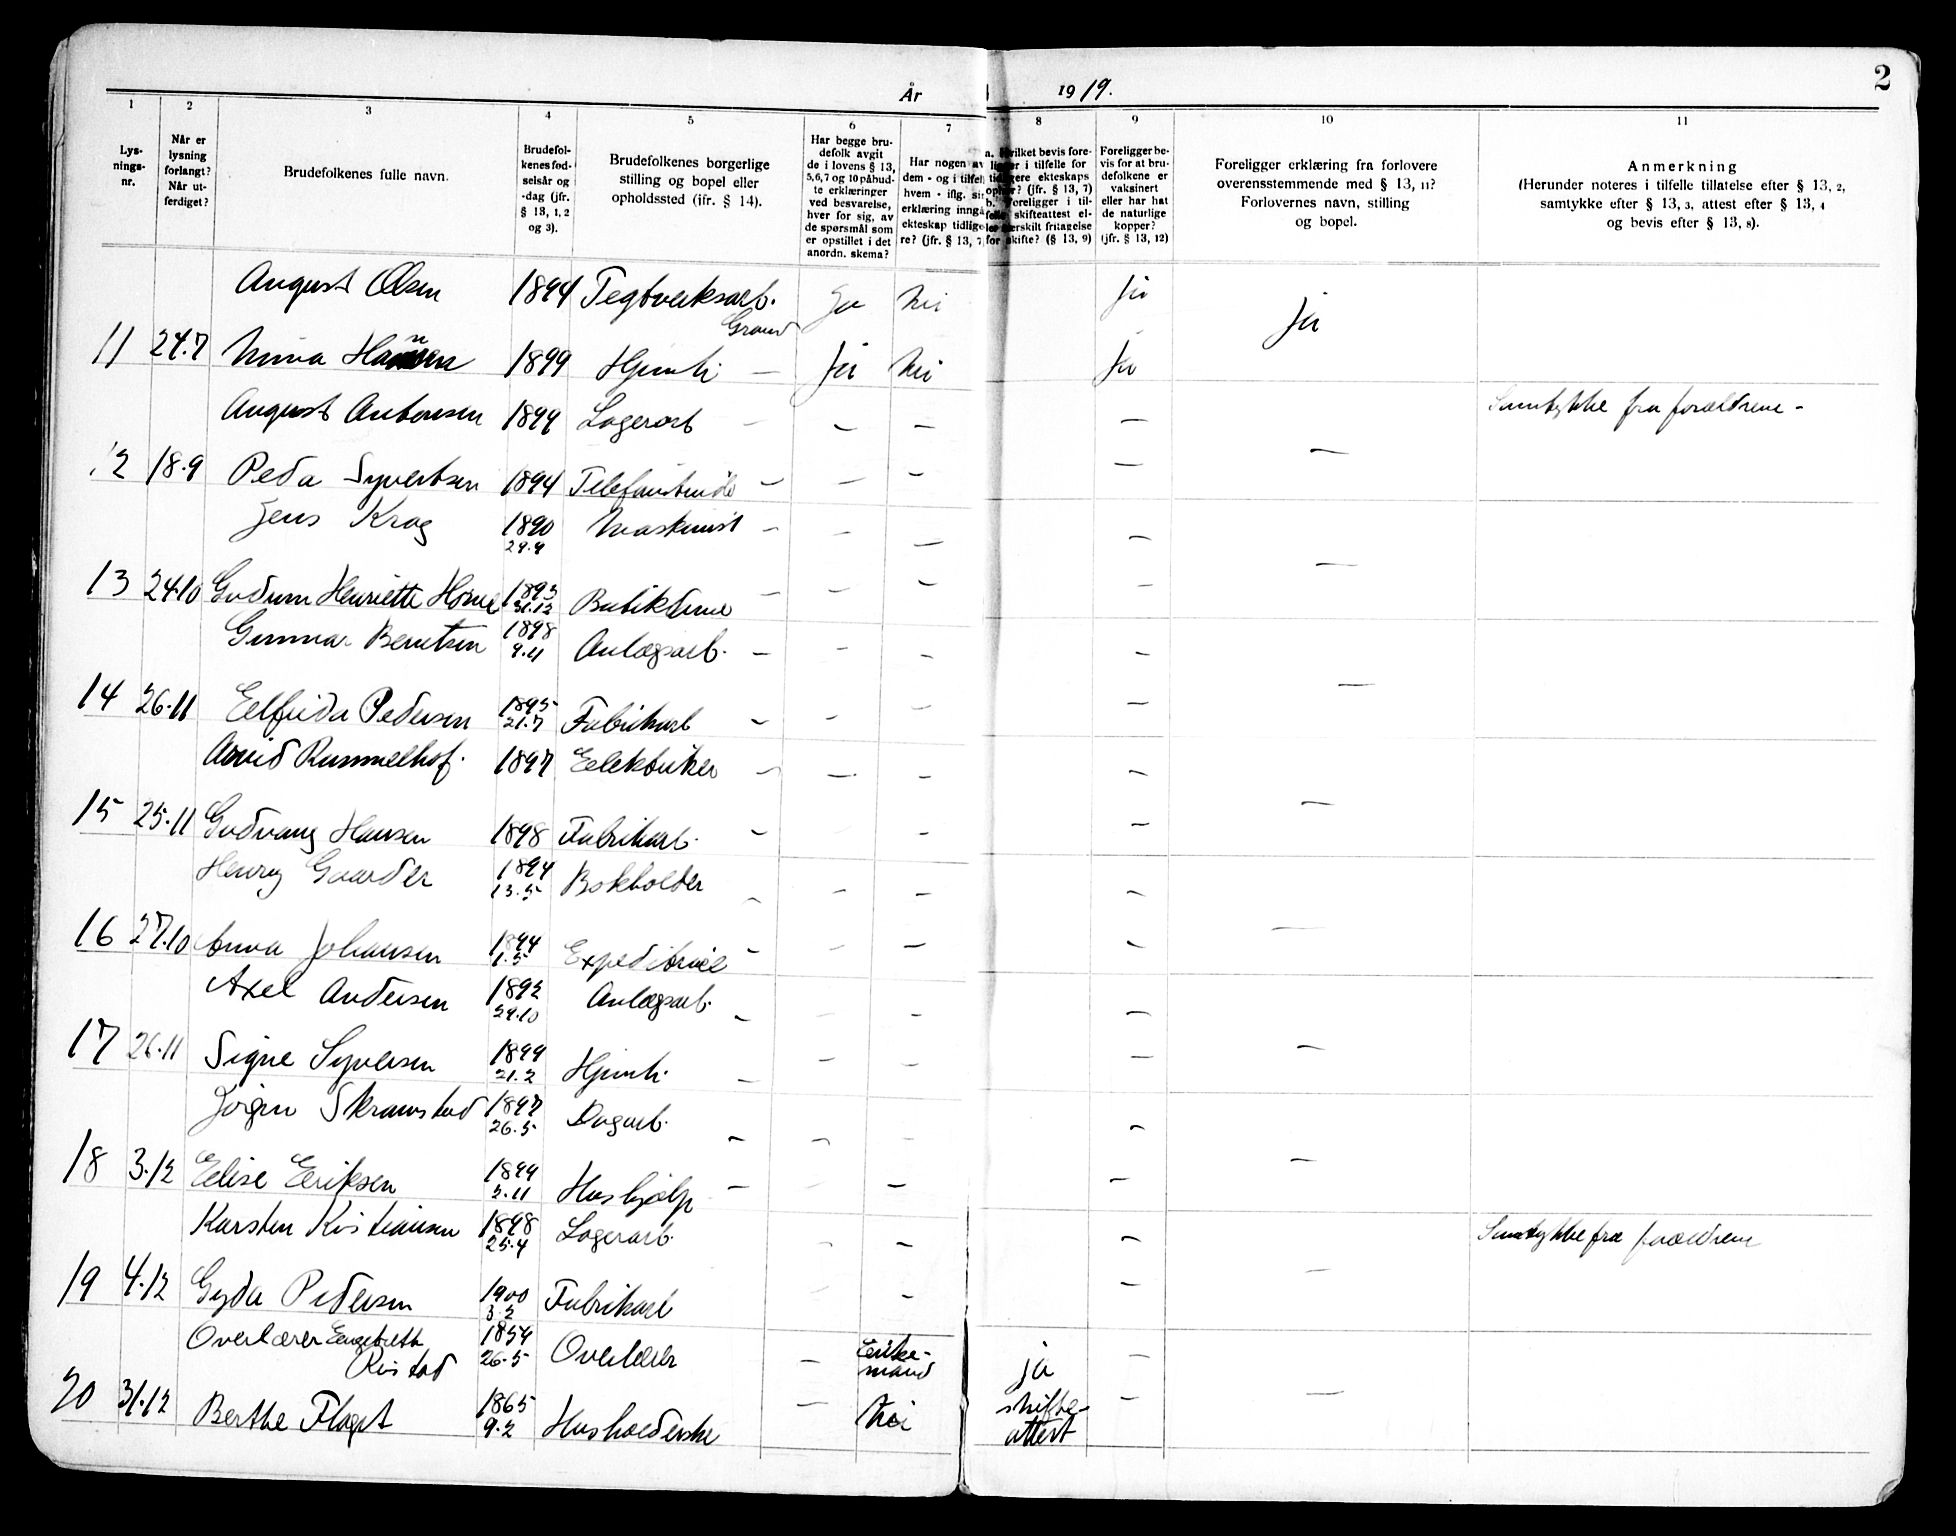 År 1919.
2
1 2 3 4 5 6 7 8 9 10 11
Lys-
nings-
nr.
Når er
lysning
forlangt?
Når ut-
ferdiget?
Brudefolkenes fulle navn.
Brudefol-
kenes fød-
selsår og
-dag (jfr.
§ 13, 1, 2
og 3).
Brudefolkenes borgerlige
stilling og bopel eller
opholdssted (jfr. § 14).
Har begge bru-
defolk avgit
de i lovens § 13,
5,6,7 og 10 påbud-
te erklæringer
ved besvarelse,
hver for sig, av
de spørsmål som
er opstillet i det
anordn. skema?
Har nogen av
dem - og i tilfel
hvem - iflg. si
erklæring inngå
ekteskap tidlige
re? (jfr. § 13, 7
hvilket bevis fore-
ligger i tilfelle for
tidligere ekteskaps
ophør? (jfr. § 13, 7)
b. Foreligger i til-
felle skifteattest el-
ler særskilt fritagelse
for skifte? (§ 13, 9)
Foreligger be-
vis for at bru-
defolkene er
vaksinert
eller har hat
de naturlige
kopper?
(jfr. § 13, 12)
Foreligger erklæring fra forlovere
overensstemmende med § 13, 11?
Forlovernes navn, stilling
og bopel.
Anmerkning
(Herunder noteres i tilfelle tillatelse efter § 13, 2,
samtykke efter § 13, 3, attest efter § 13, 4
og bevis efter § 13, 8).
August Olsen 1894 Teglverksarb. Ja Nei Ja Ja
11 24.7 Hansen 1899 Hjemv. — Ja Nei Ja
August Antonsen 1894 Lagerarb — — — — Samtykke fra forældrene -
12 18.9 Peda Syvertsen 1894 — — — — —
Jens Krog 1890 29.9 Maskinist — — — —
13 24.10 Gudrun Henriette Horne 1893 31.12 Butikdame — — — — —
Gunnar Berntsen 1898 9.11 Anlægsarb. — — — —
14 26.11 Elfrida Pedersen 1895 21.7 Fabrikarb — — — — —
Arvid Rummelhof. 1897 Elektriker — — — —
15 25.11 Gudvang Hansen 1898 Fabrikarb. — — — —
Henry Gaarder 1894 13.5 Bokholder — — — —
16 27.10 Anna Johansen 1894 1.5 Expeditrice — — — — —
Axel Andersen 1892 29.10 Anlægsarb. — — — —
17 26.11 Signe Syversen 1899 21.2 Hjemv. — — — — —
Jørgen Skramstad 1897 26.5 Dagarb. — — — —
18 3.12 Elise Eriksen 1899 3.11 Hushjælp — — — — —
Karsten Kristiansen 1898 25.4 Lagerarb. — — Samtykke fra forældrene
19 4.12 Gyda Pedersen 1900 3.2 Fabrikarb — — — —
Overlærer Engebreth
Ristad 1854 26.5 Overlærer — Enke-
mand ja —
20 31.12 Berthe Flagst 1865 9.2 Husholderske — Nei skifte-
attest — —